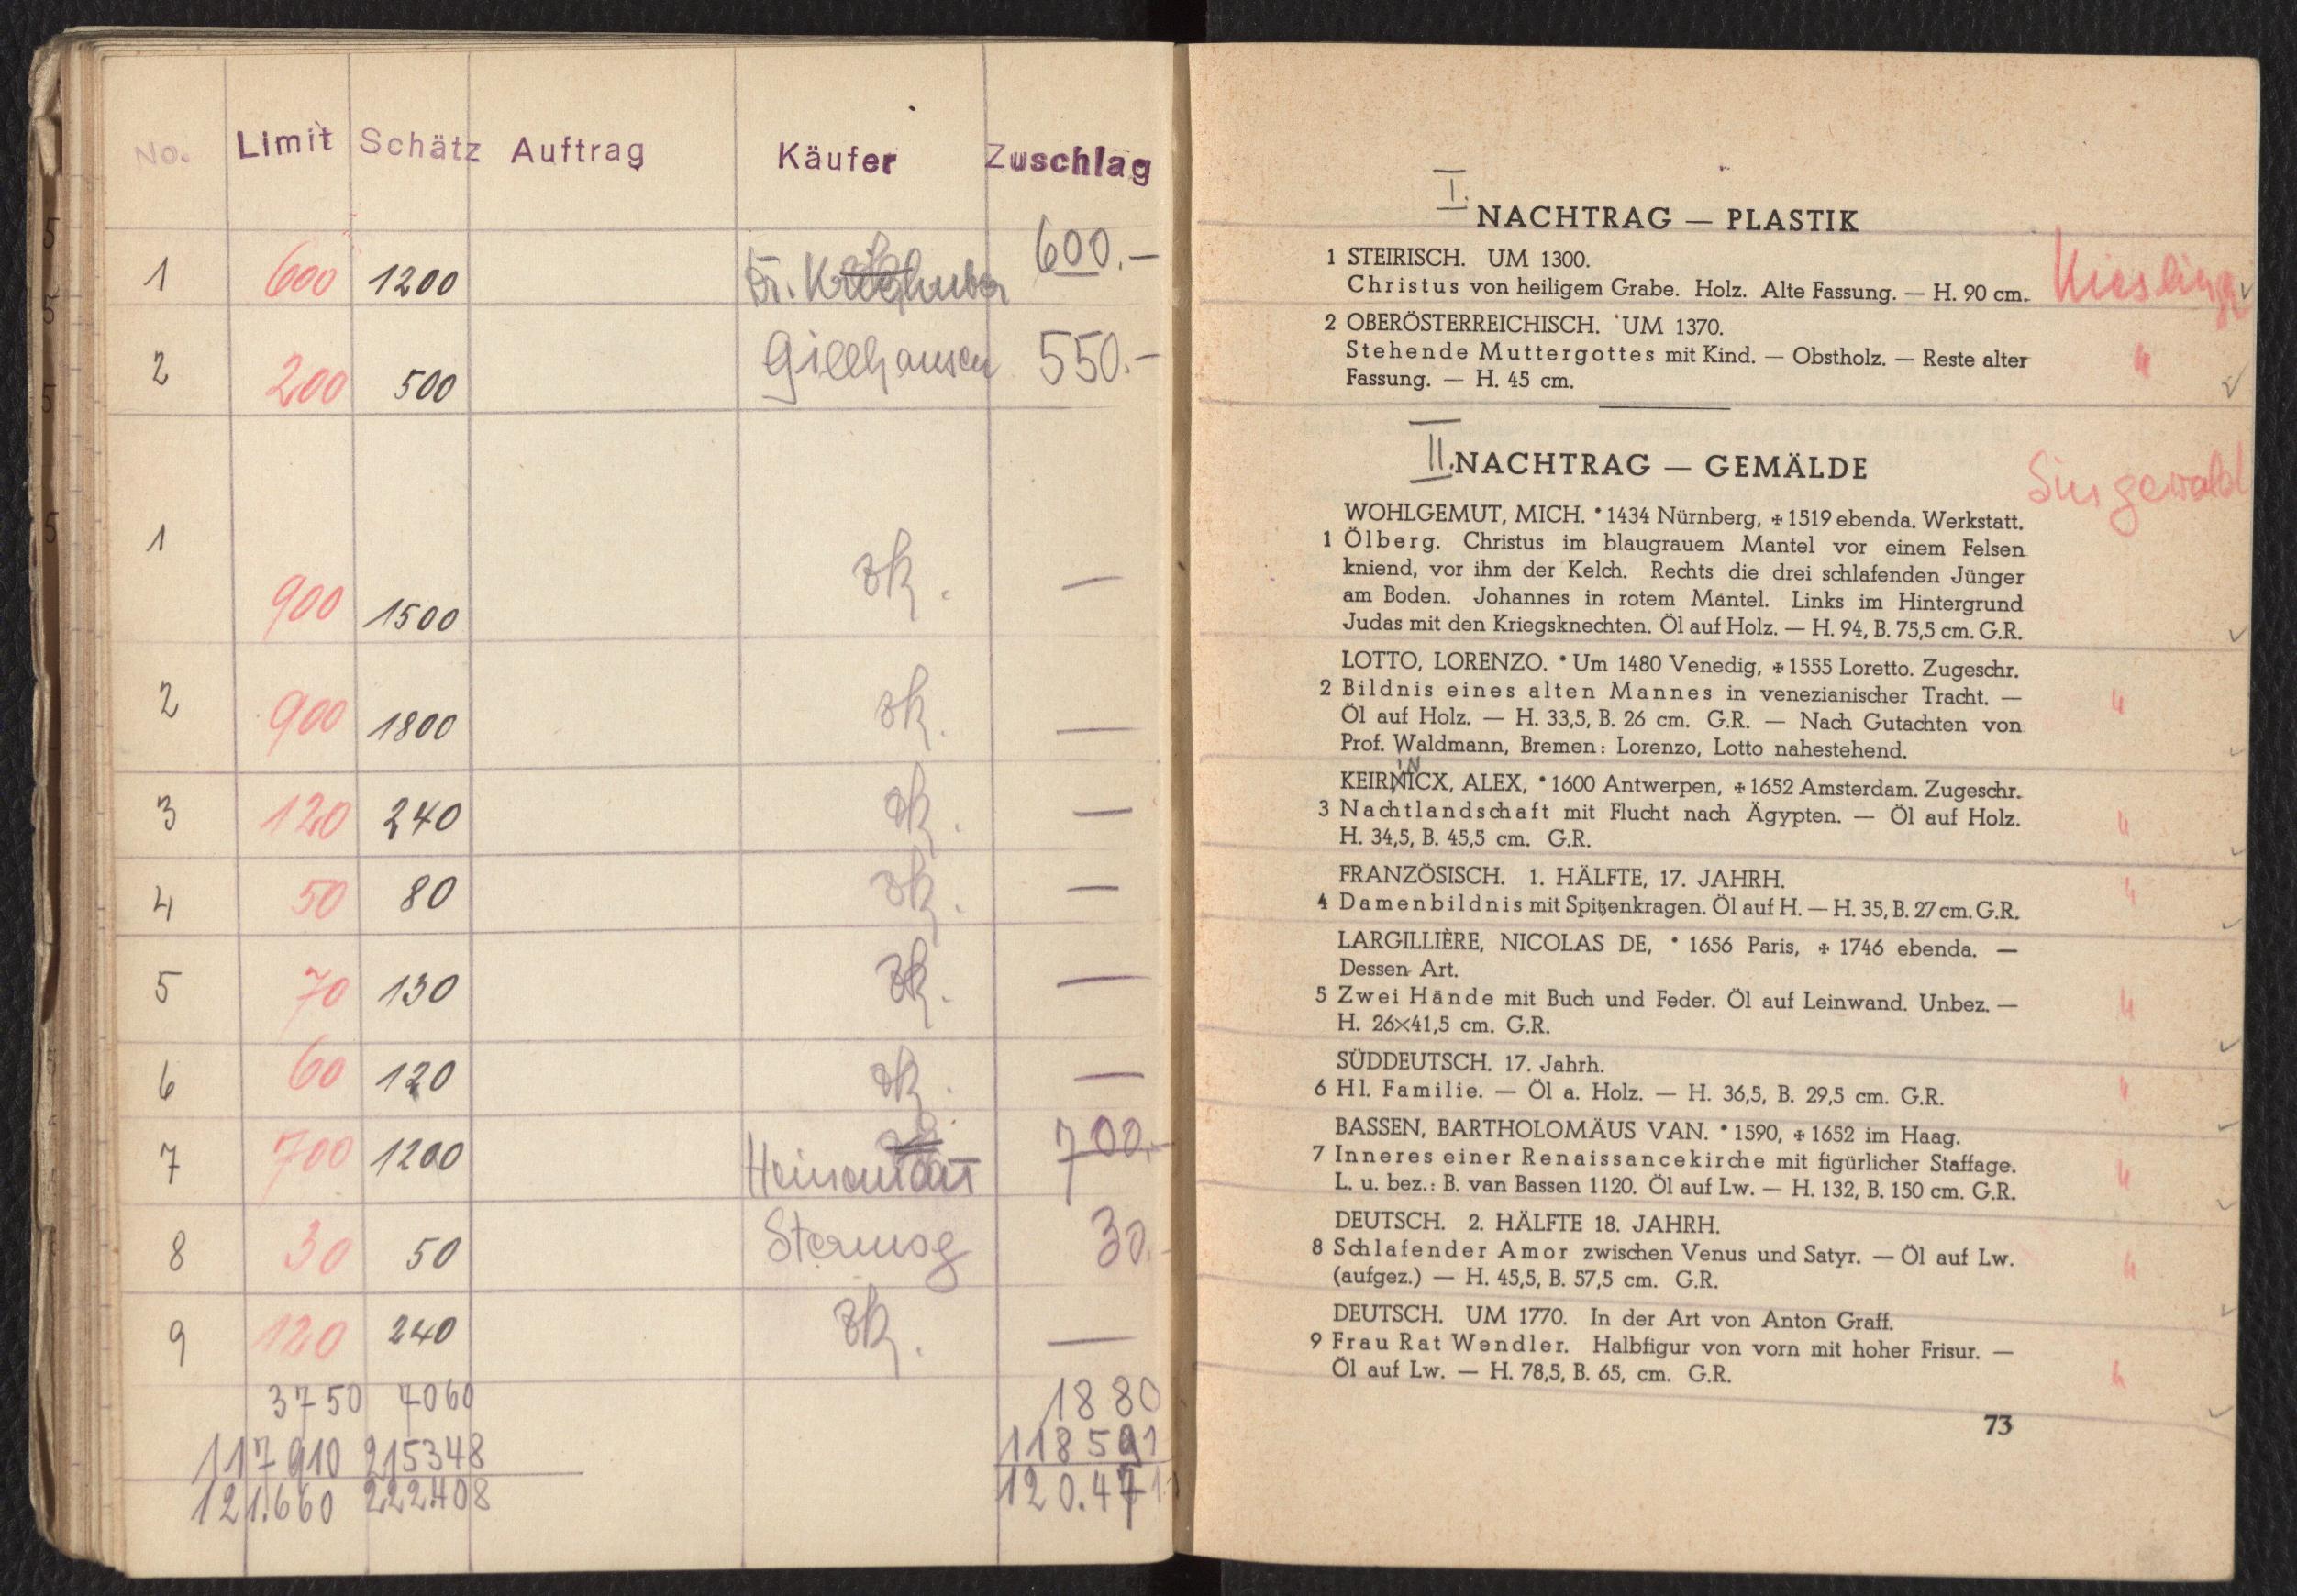 No. Limit Schätz Auftrag Käufer Zuschlag
1 600 1200 600.–
2 200 500 Gillhausen 550.–
1 900 1500 zk. —
2 900 1800 zk. —
3 120 240 zk. —
4 50 80 zk. —
5 70 130 zk. —
6 60 120 zk. —
7 700 1200 700.–
8 30 50 30.-
9 120 240 zk. —
3750 7060 1880
117910 215348 118591
121.660 222408 120.471
I.
NACHTRAG — PLASTIK
1 STEIRISCH. UM 1300.
Christus von heiligem Grabe. Holz. Alte Fassung. — H. 90 cm. Kiesling ✓
2 OBERÖSTERREICHISCH. UM 1370.
Stehende Muttergottes mit Kind. — Obstholz. — Reste alter "
Fassung. — H. 45 cm. ✓
II. NACHTRAG — GEMÄLDE Singewald
WOHLGEMUT, MICH. * 1434 Nürnberg, ✠ 1519 ebenda. Werkstatt.
1 Ölberg. Christus im blaugrauem Mantel vor einem Felsen
kniend, vor ihm der Kelch. Rechts die drei schlafenden Jünger
am Boden. Johannes in rotem Mantel. Links im Hintergrund
Judas mit den Kriegsknechten. Öl auf Holz. — H. 94, B. 75,5 cm. G.R. ✓
LOTTO, LORENZO. * Um 1480 Venedig, ✠ 1555 Loretto. Zugeschr.
2 Bildnis eines alten Mannes in venezianischer Tracht. — "
Öl auf Holz. — H. 33,5, B. 26 cm. G.R. — Nach Gutachten von
Prof. Waldmann, Bremen: Lorenzo, Lotto nahestehend. ✓
IN
KEIRNICX, ALEX, * 1600 Antwerpen, ✠ 1652 Amsterdam. Zugeschr.
3 Nachtlandschaft mit Flucht nach Ägypten. — Öl auf Holz. "
H. 34,5, B. 45,5 cm. G.R. ✓
FRANZÖSISCH. 1. HÄLFTE, 17. JAHRH. "
4 Damenbildnis mit Spitzenkragen. Öl auf H. — H. 35, B. 27 cm. G.R. ✓
LARGILLIÈRE, NICOLAS DE, * 1656 Paris, ✠ 1746 ebenda. —
Dessen Art.
5 Zwei Hände mit Buch und Feder. Öl auf Leinwand. Unbez. — "
H. 26×41,5 cm. G.R. ✓
SÜDDEUTSCH. 17. Jahrh.
6 Hl. Familie. — Öl a. Holz. — H. 36,5, B. 29,5 cm. G.R. "
BASSEN, BARTHOLOMÄUS VAN. * 1590, ✠ 1652 im Haag. ✓
7 Inneres einer Renaissancekirche mit figürlicher Staffage. "
L. u. bez.: B. van Bassen 1120. Öl auf Lw. — H. 132, B. 150 cm. G.R. ✓
DEUTSCH. 2. HÄLFTE 18. JAHRH.
8 Schlafender Amor zwischen Venus und Satyr. — Öl auf Lw. "
(aufgez.) — H. 45,5, B. 57,5 cm. G.R. ✓
DEUTSCH. UM 1770. In der Art von Anton Graff.
9 Frau Rat Wendler. Halbfigur von vorn mit hoher Frisur. —
Öl auf Lw. — H. 78,5, B. 65, cm. G.R. " ✓
73